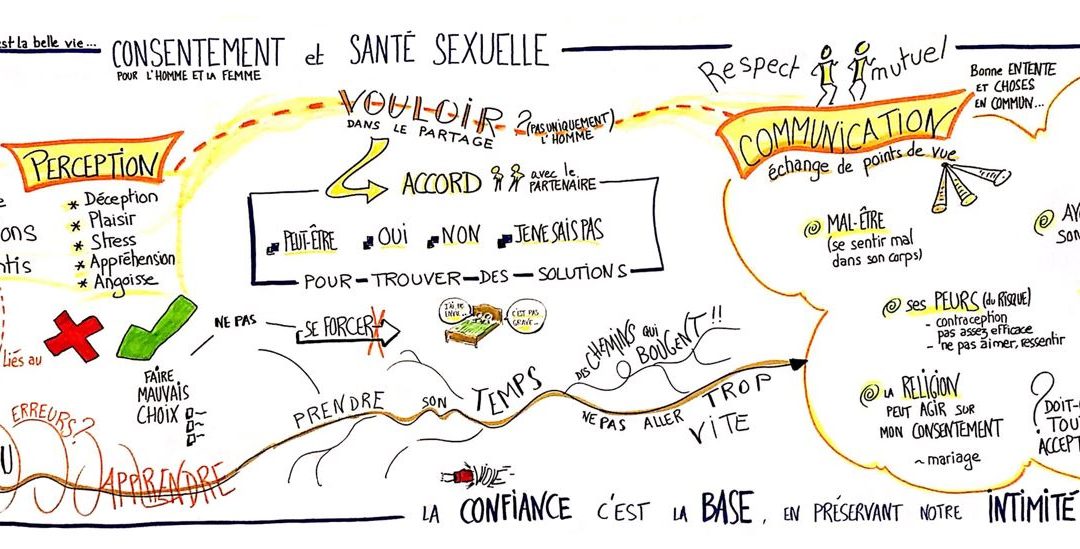 est la belle vie...
CONSENTEMENT et SANTÉ SEXUELLE
POUR L'HOMME ET LA FEMME
Respect mutuel
Bonne ENTENTE
ET CHOSES
EN COMMUN...
VOULOIR ? (PAS UNIQUEMENT)
L'HOMME
DANS LE PARTAGE
PERCEPTION
* Déception
* Plaisir
* Stress
* Appréhension
* Angoisse
ons
ntis
liés au
ACCORD avec le
PARTENAIRE
PEUT-ÊTRE OUI NON JE NE SAIS PAS
POUR-TROUVER-DES-SOLUTIONS
COMMUNICATION
échange de points de vue
MAL-ÊTRE
(se sentir mal
dans son corps)
AV
SON
ses PEURS (du RISQUE)
- contraception
pas assez efficace
- ne pas aimer, ressentir
LA RELIGION
PEUT AGIR SUR
MON CONSENTEMENT
~ mariage
? DOIT-
TOUT
ACCEPT
NE PAS SE FORCER
C'EST PAS
GRAVE...
FAIRE
MAUVAIS
CHOIX
ERREURS?
U
APPRENDRE
PRENDRE SON TEMPS
DES CHEMINS QUI
BOUGENT!!
NE PAS ALLER TROP
VITE
LA CONFIANCE C'EST LA BASE, EN PRÉSERVANT NOTRE INTIMITÉ